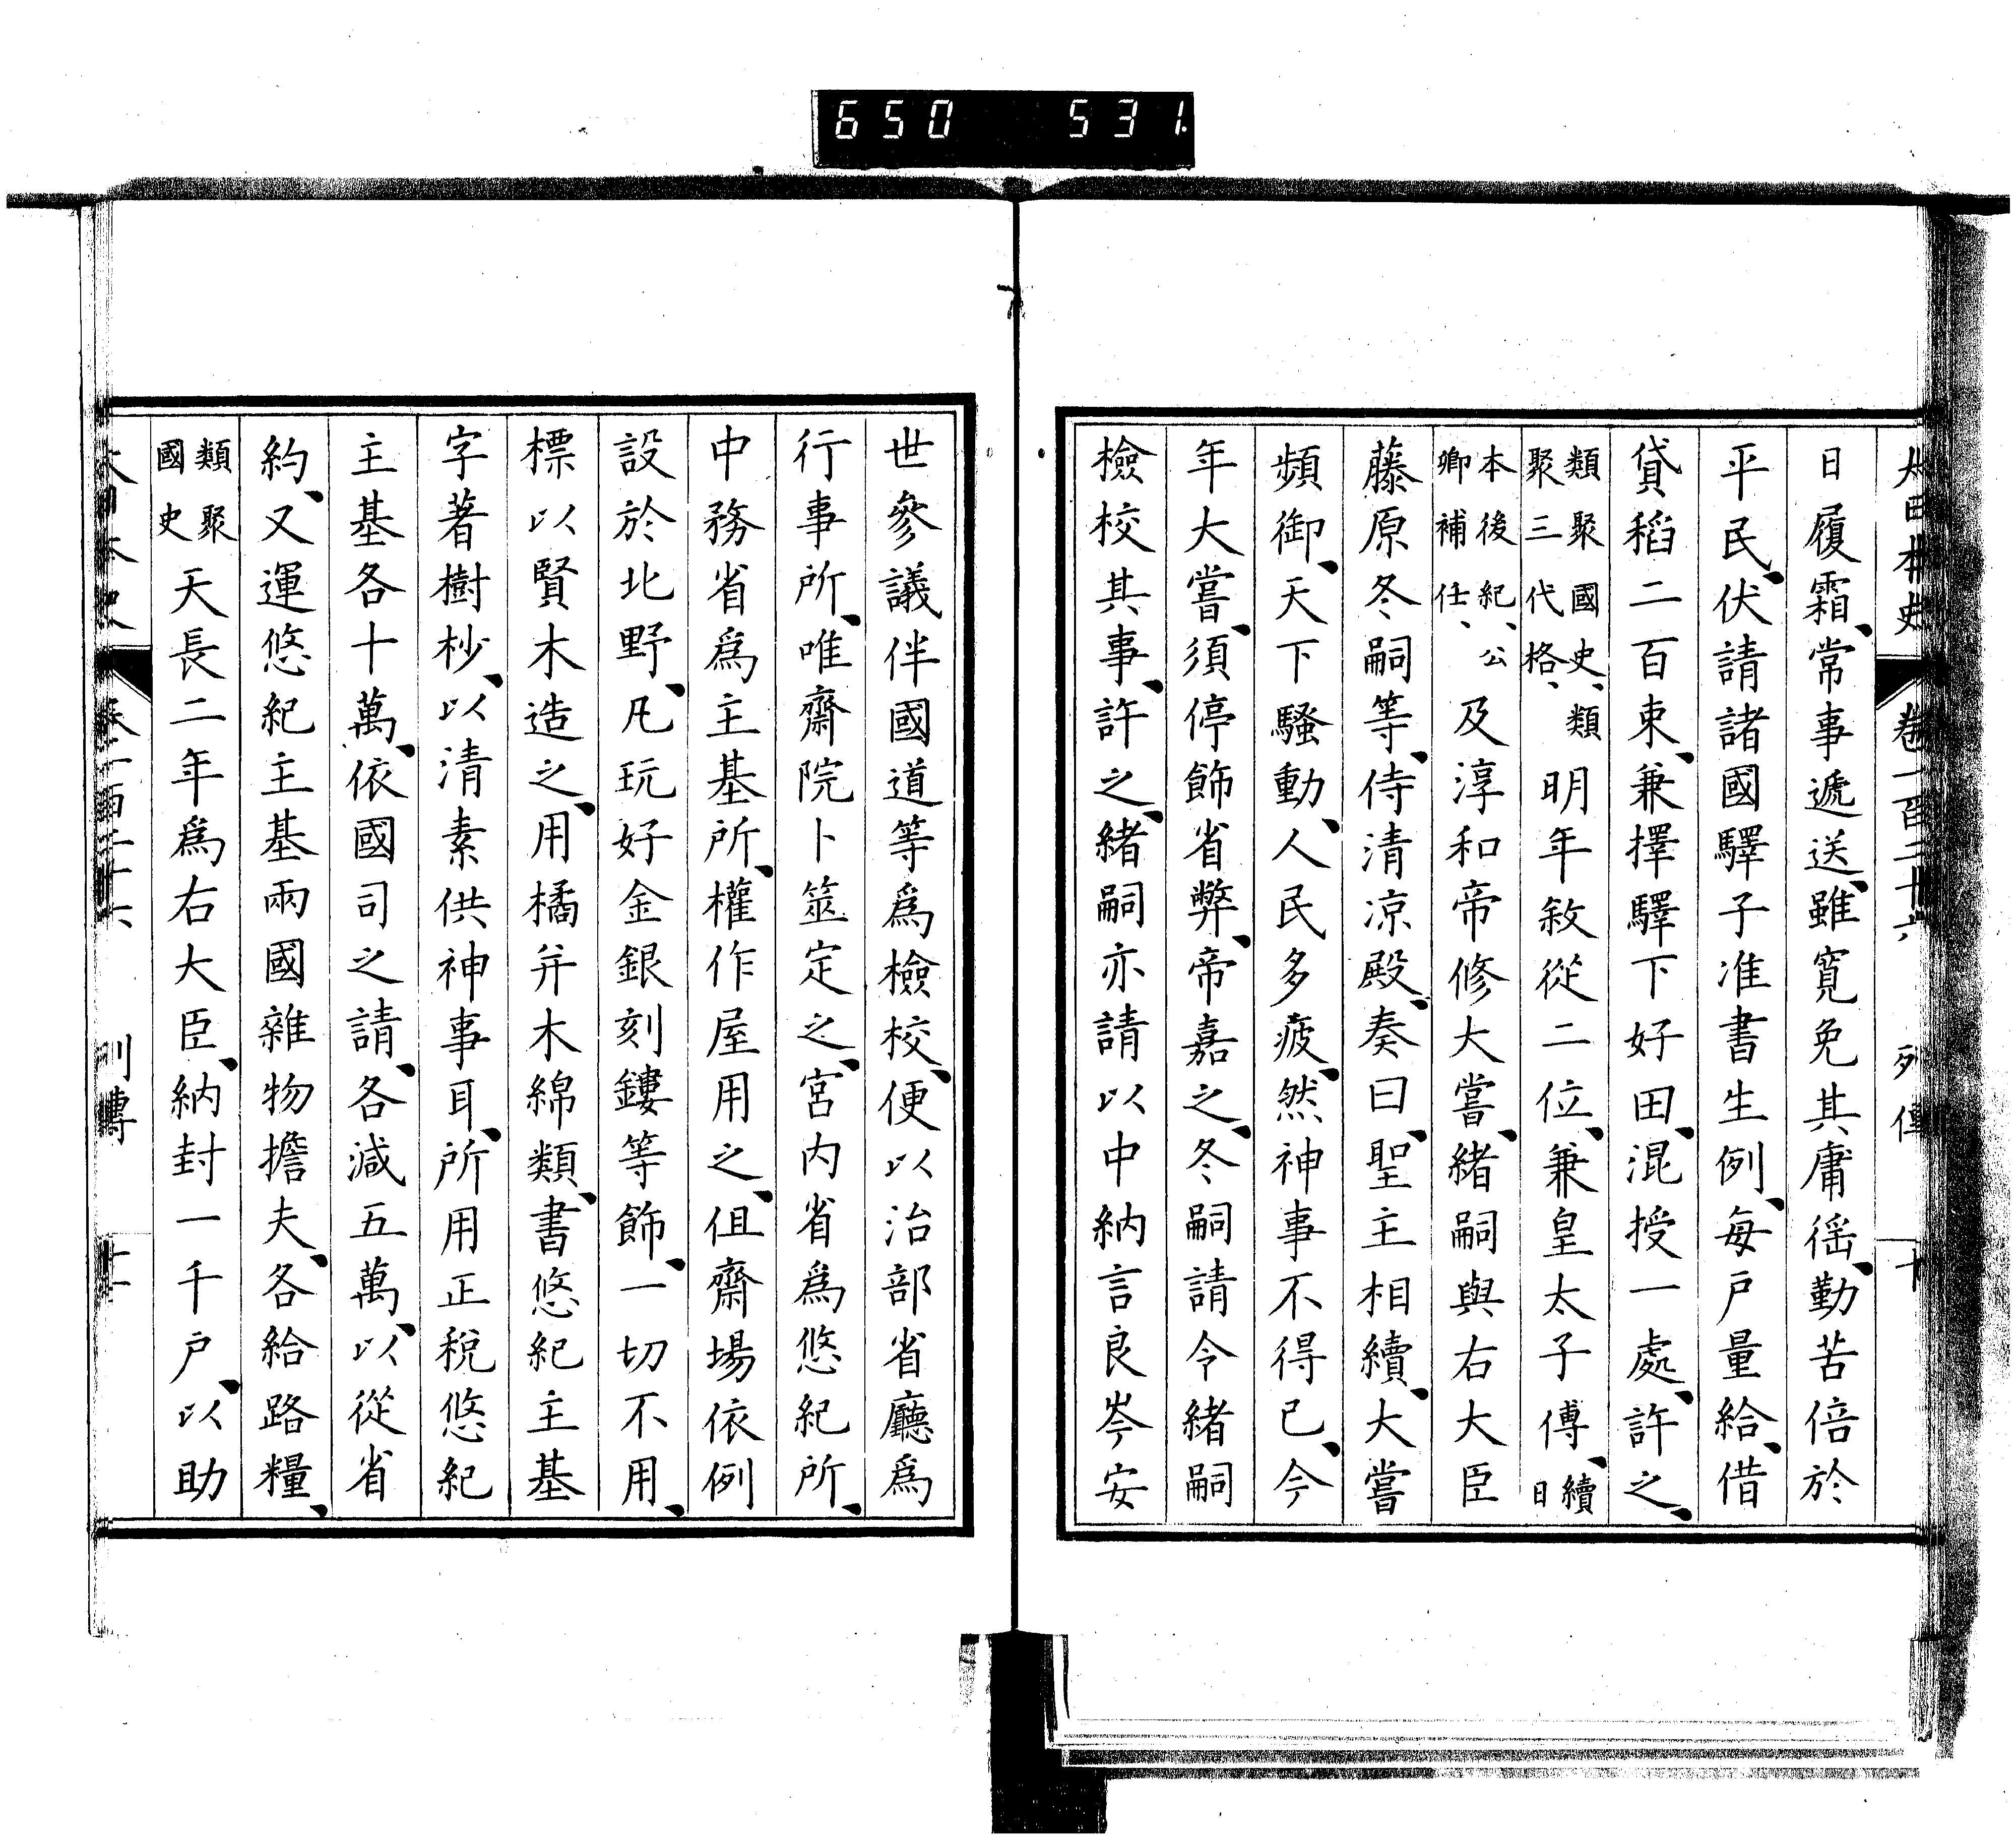 650 531.
大日本史 卷一百二十六 列傳 十
日履霜、常事遞送、雖寬免其庸徭、勤苦倍於
平民、伏請諸國驛子准書生例、每戶量給、借
貸稻二百束、兼擇驛下好田、混授一處、許之、
類聚國史、類聚三代格、明年敘從二位、兼皇太子傅、續日
本後紀、公卿補任、及淳和帝修大嘗、緒嗣與右大臣
藤原冬嗣等、侍清凉殿、奏曰、聖主相續、大嘗
頻御、天下騷動、人民多疲、然神事不得已、今
年大嘗、須停飾省弊、帝嘉之、冬嗣請令緒嗣
檢校其事、許之、緒嗣亦請以中納言良岑安
世參議伴國道等爲檢校、便以治部省廳爲
行事所、唯齋院卜筮定之、宮內省爲悠紀所、
中務省爲主基所、權作屋用之、但齋場依例
設於北野、凡玩好金銀刻鏤等飾、一切不用、
標以賢木造之、用橘并木綿類、書悠紀主基
字著樹杪、以清素供神事耳、所用正稅悠紀
主基各十萬、依國司之請、各減五萬、以從省
約、又運悠紀主基兩國雜物擔夫、各給路糧、
類聚國史天長二年爲右大臣、納封一千戶、以助
大日本史 卷一百二十六 列傳 十一